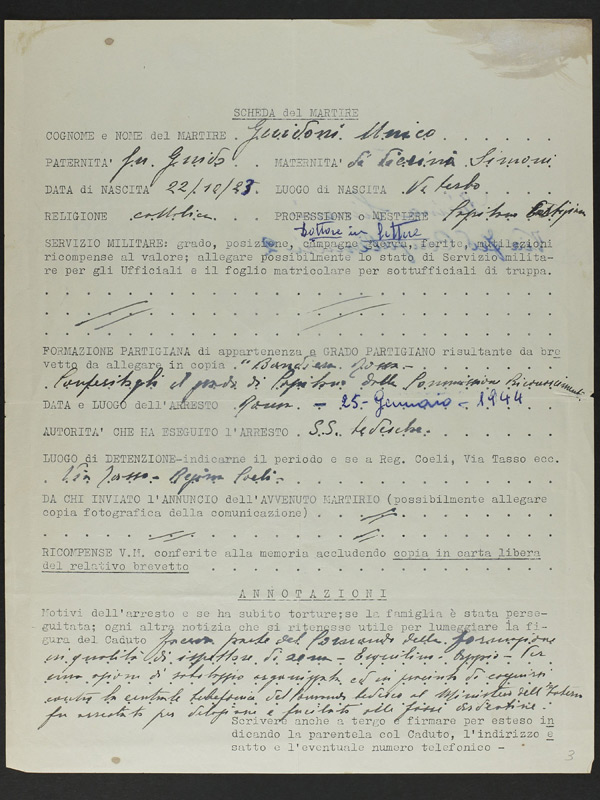 SCHEDA del MARTIRE
COGNOME e NOME del MARTIRE . Guidoni Unico . . . . . .
PATERNITA' fu Guido . . MATERNITA' di Simoni
DATA di NASCITA 22/10/23 LUOGO di NASCITA Viterbo
RELIGIONE cattolica . . PROFESSIONE o MESTIERE Capitano Partigiano
Dottore in Lettere
SERVIZIO MILITARE: grado, posizione, campagne guerra, ferite, mutilazioni
ricompense al valore; allegare possibilmente lo stato di Servizio milita-
re per gli Ufficiali e il foglio matricolare per sottufficiali di truppa.
FORMAZIONE PARTIGIANA di appartenenza e GRADO PARTIGIANO risultante da bre
vetto da allegare in copia . "Bandiera Rossa -
Conferitogli il grado di Capitano dalla Commissione Riconoscimenti
DATA e LUOGO dell'ARRESTO . Roma - 25 - Gennaio - 1944
AUTORITA' CHE HA ESEGUITO l'ARRESTO . S.S. tedesche .
LUOGO di DETENZIONE-indicarne il periodo e se a Reg. Coeli, Via Tasso ecc.
. Via Tasso - Regina Coeli - . . .
DA CHI INVIATO l'ANNUNCIO dell'AVVENUTO MARTIRIO (possibilmente allegare
copia fotografica della comunicazione) . . .
RICOMPENSE V.M. conferite alla memoria accludendo copia in carta libera
del relativo brevetto . . .
ANNOTAZIONI
Motivi dell'arresto e se ha subito torture;se la famiglia è stata perse-
guitata; ogni altra notizia che si ritenesse utile per lumeggiare la fi-
gura del Caduto faceva parte del Comando della formazione
in qualità di ispettore di zona - Esquilino - Appio - Per
una azione di sabotaggio organizzata ed in procinto di eseguirsi
contro la centrale telefonica del Comando tedesco al Ministero dell'Interno
fu arrestato per delazione e fucilato alle fosse ardeatine.
Scrivere anche a tergo e firmare per esteso in
dicando la parentela col Caduto, l'indirizzo e
satto e l'eventuale numero telefonico -
3